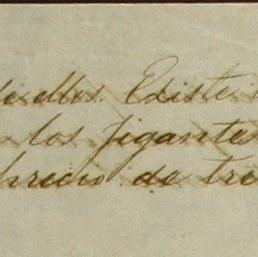 de ellos. Existe
los Jigante
precio de tre